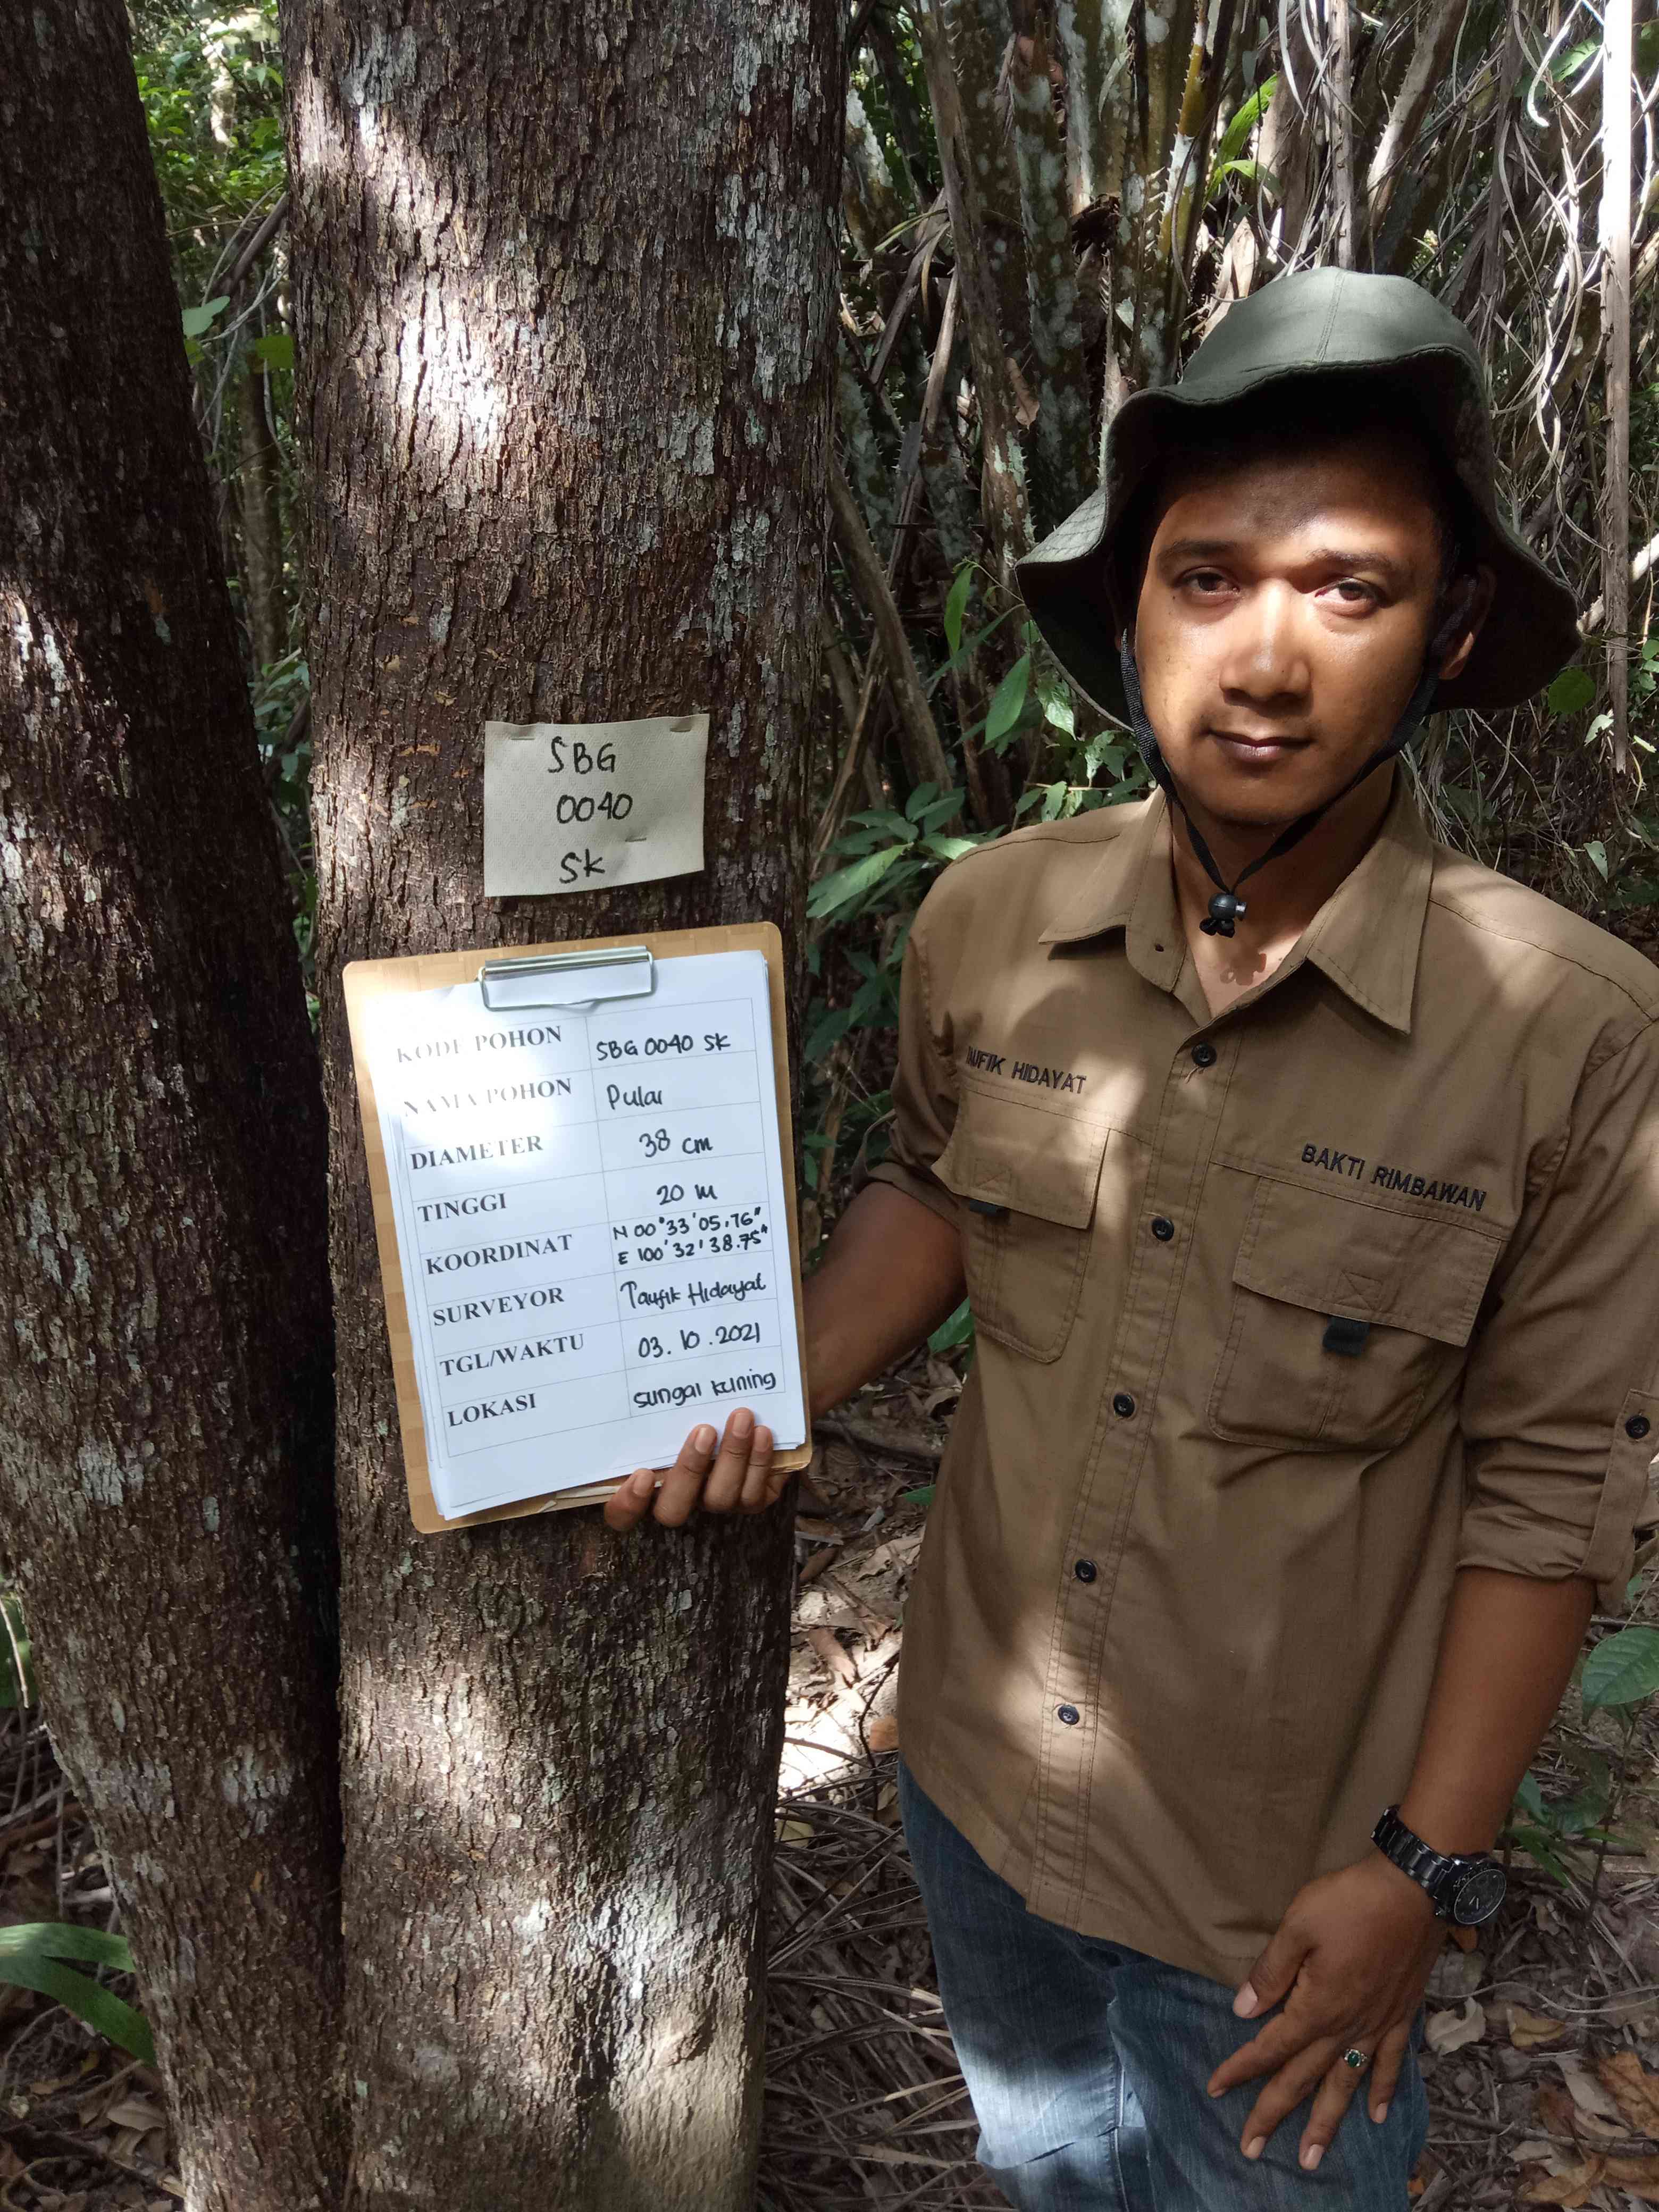 SBG
0040
SK
KODE POHON SBG 0040 SK
NAMA POHON Pulai
DIAMETER 38 cm
TINGGI 20 m
KOORDINAT N 00°33'05.76"
E 100°32'38.75"
SURVEYOR Taufik Hidayat
TGL/WAKTU 03.10.2021
LOKASI sungai kuning
TAUFIK HIDAYAT
BAKTI RIMBAWAN